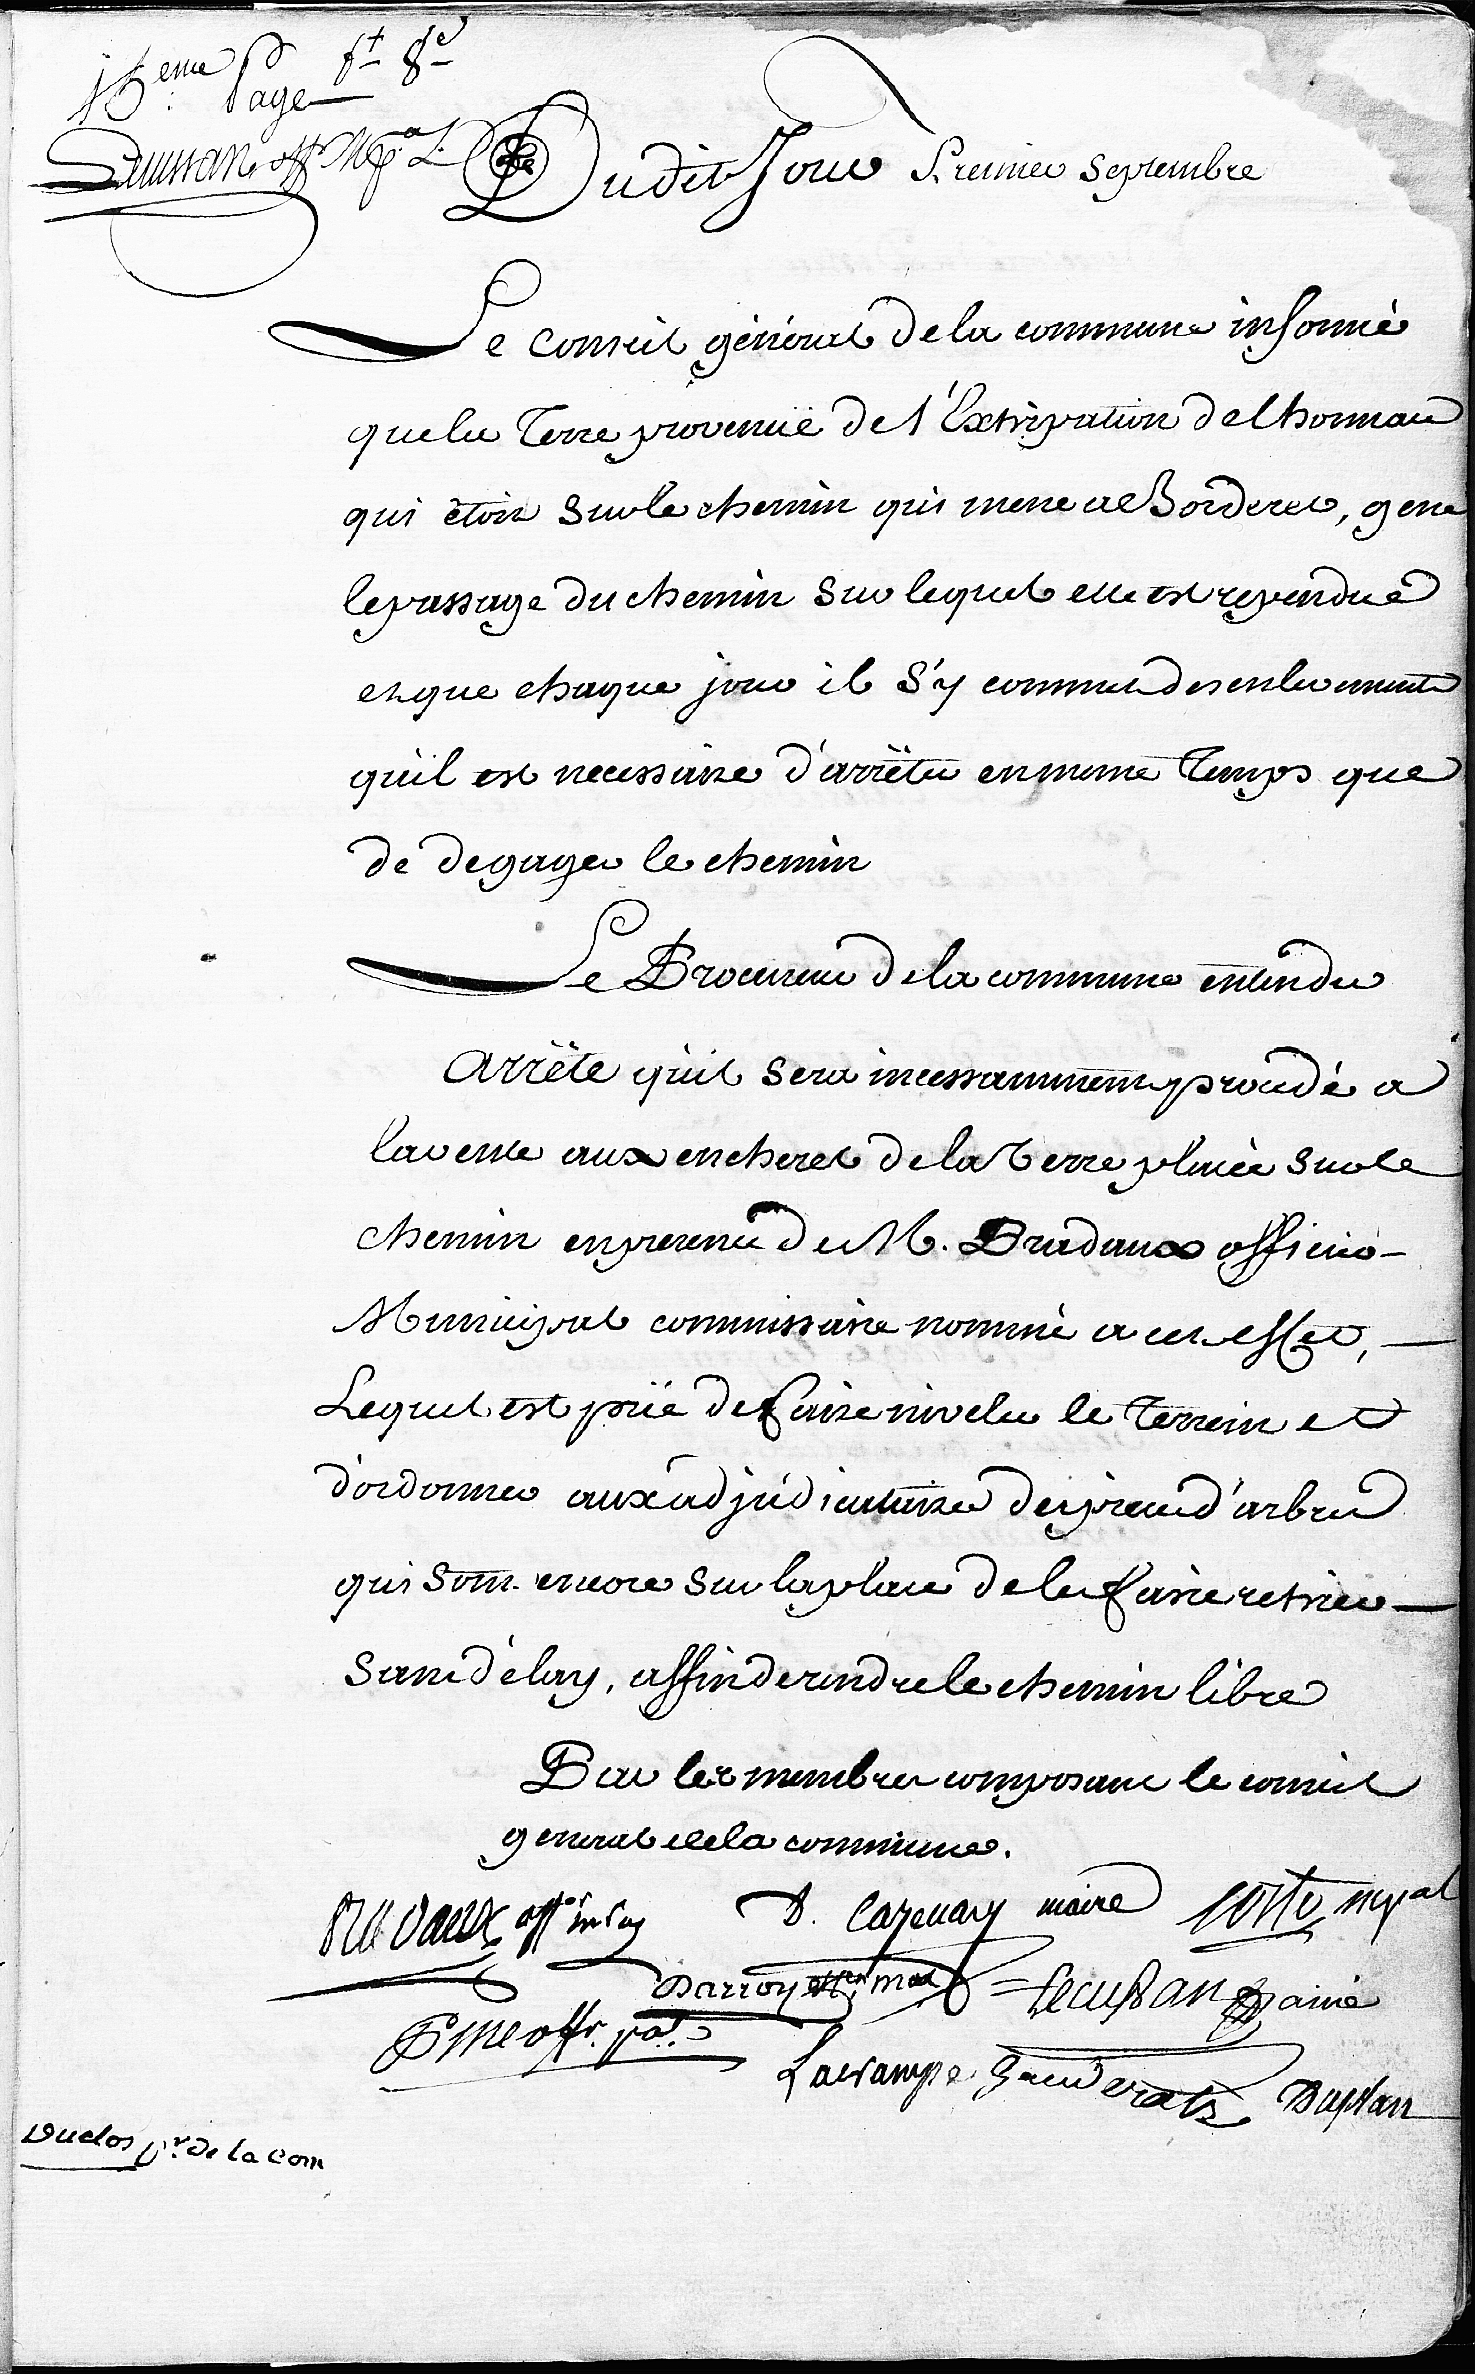 15.eme Page f.t 8.e
Dudit Jour Premier Septembre
Le Conseil général de la commune informé
que la Terre provenuë de l'Extirpation de l'hormau
qui étoit Sur le chemin qui mene a Borderes, gene
le passage du chemin Sur lequel elle est rependuë
et que chaque jour il S'y commet des enlevements
qu'il est necessaire d'arrêter en meme Temps que
de degager le chemin
Le Procureur de la commune entendu
Arrête qu'il Sera incessamment procedé a
la vente aux encheres de la Terre placée Sur le
chemin en presence de M. Pradaux officier
Municipal commissaire nommé a cet effet,
Lequel est prié de faire niveler le Terrein et
d'ordonner aux adjudicataires des pieces d'arbres
qui Sont encore Sur la place de les faire retirer
Sans délay, affin de rendre le chemin libre
Par les membres composant le conseil
general de la commune.
Pradaux off.r
D. Cazenavy maire Costo mpal
Darroy off.r mal = Lecussan ainé
off.r pal.
Lacrampe Duplan
Duclos p.r de la com